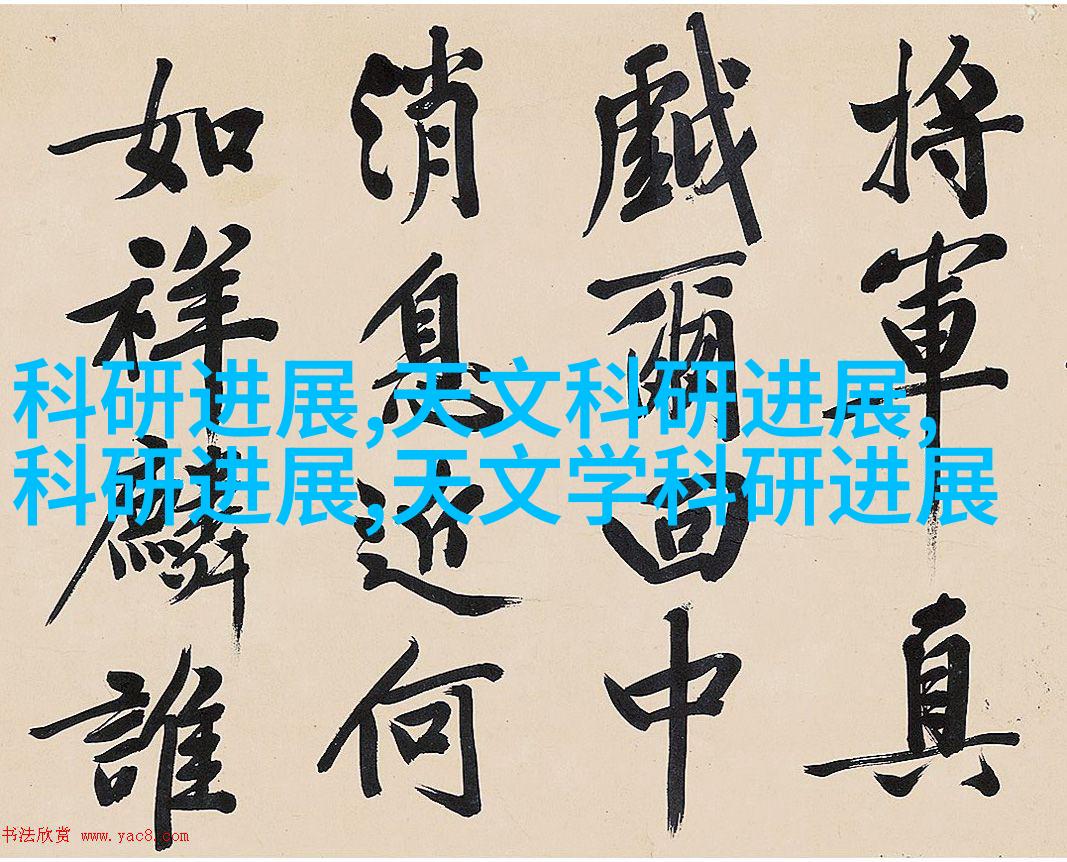 将軍真
戱爾回中
消息近何
如祥麟誰
科研进展,天文科研进展,
科研进展,天文学科研进展
书法欣赏 www.yac8.com